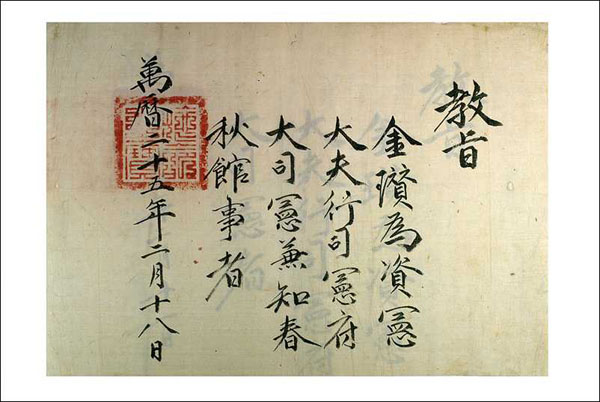 教旨
金瓚為資憲
大夫行司憲府
大司憲兼知春
秋館事者
萬曆二十五年二月十八日